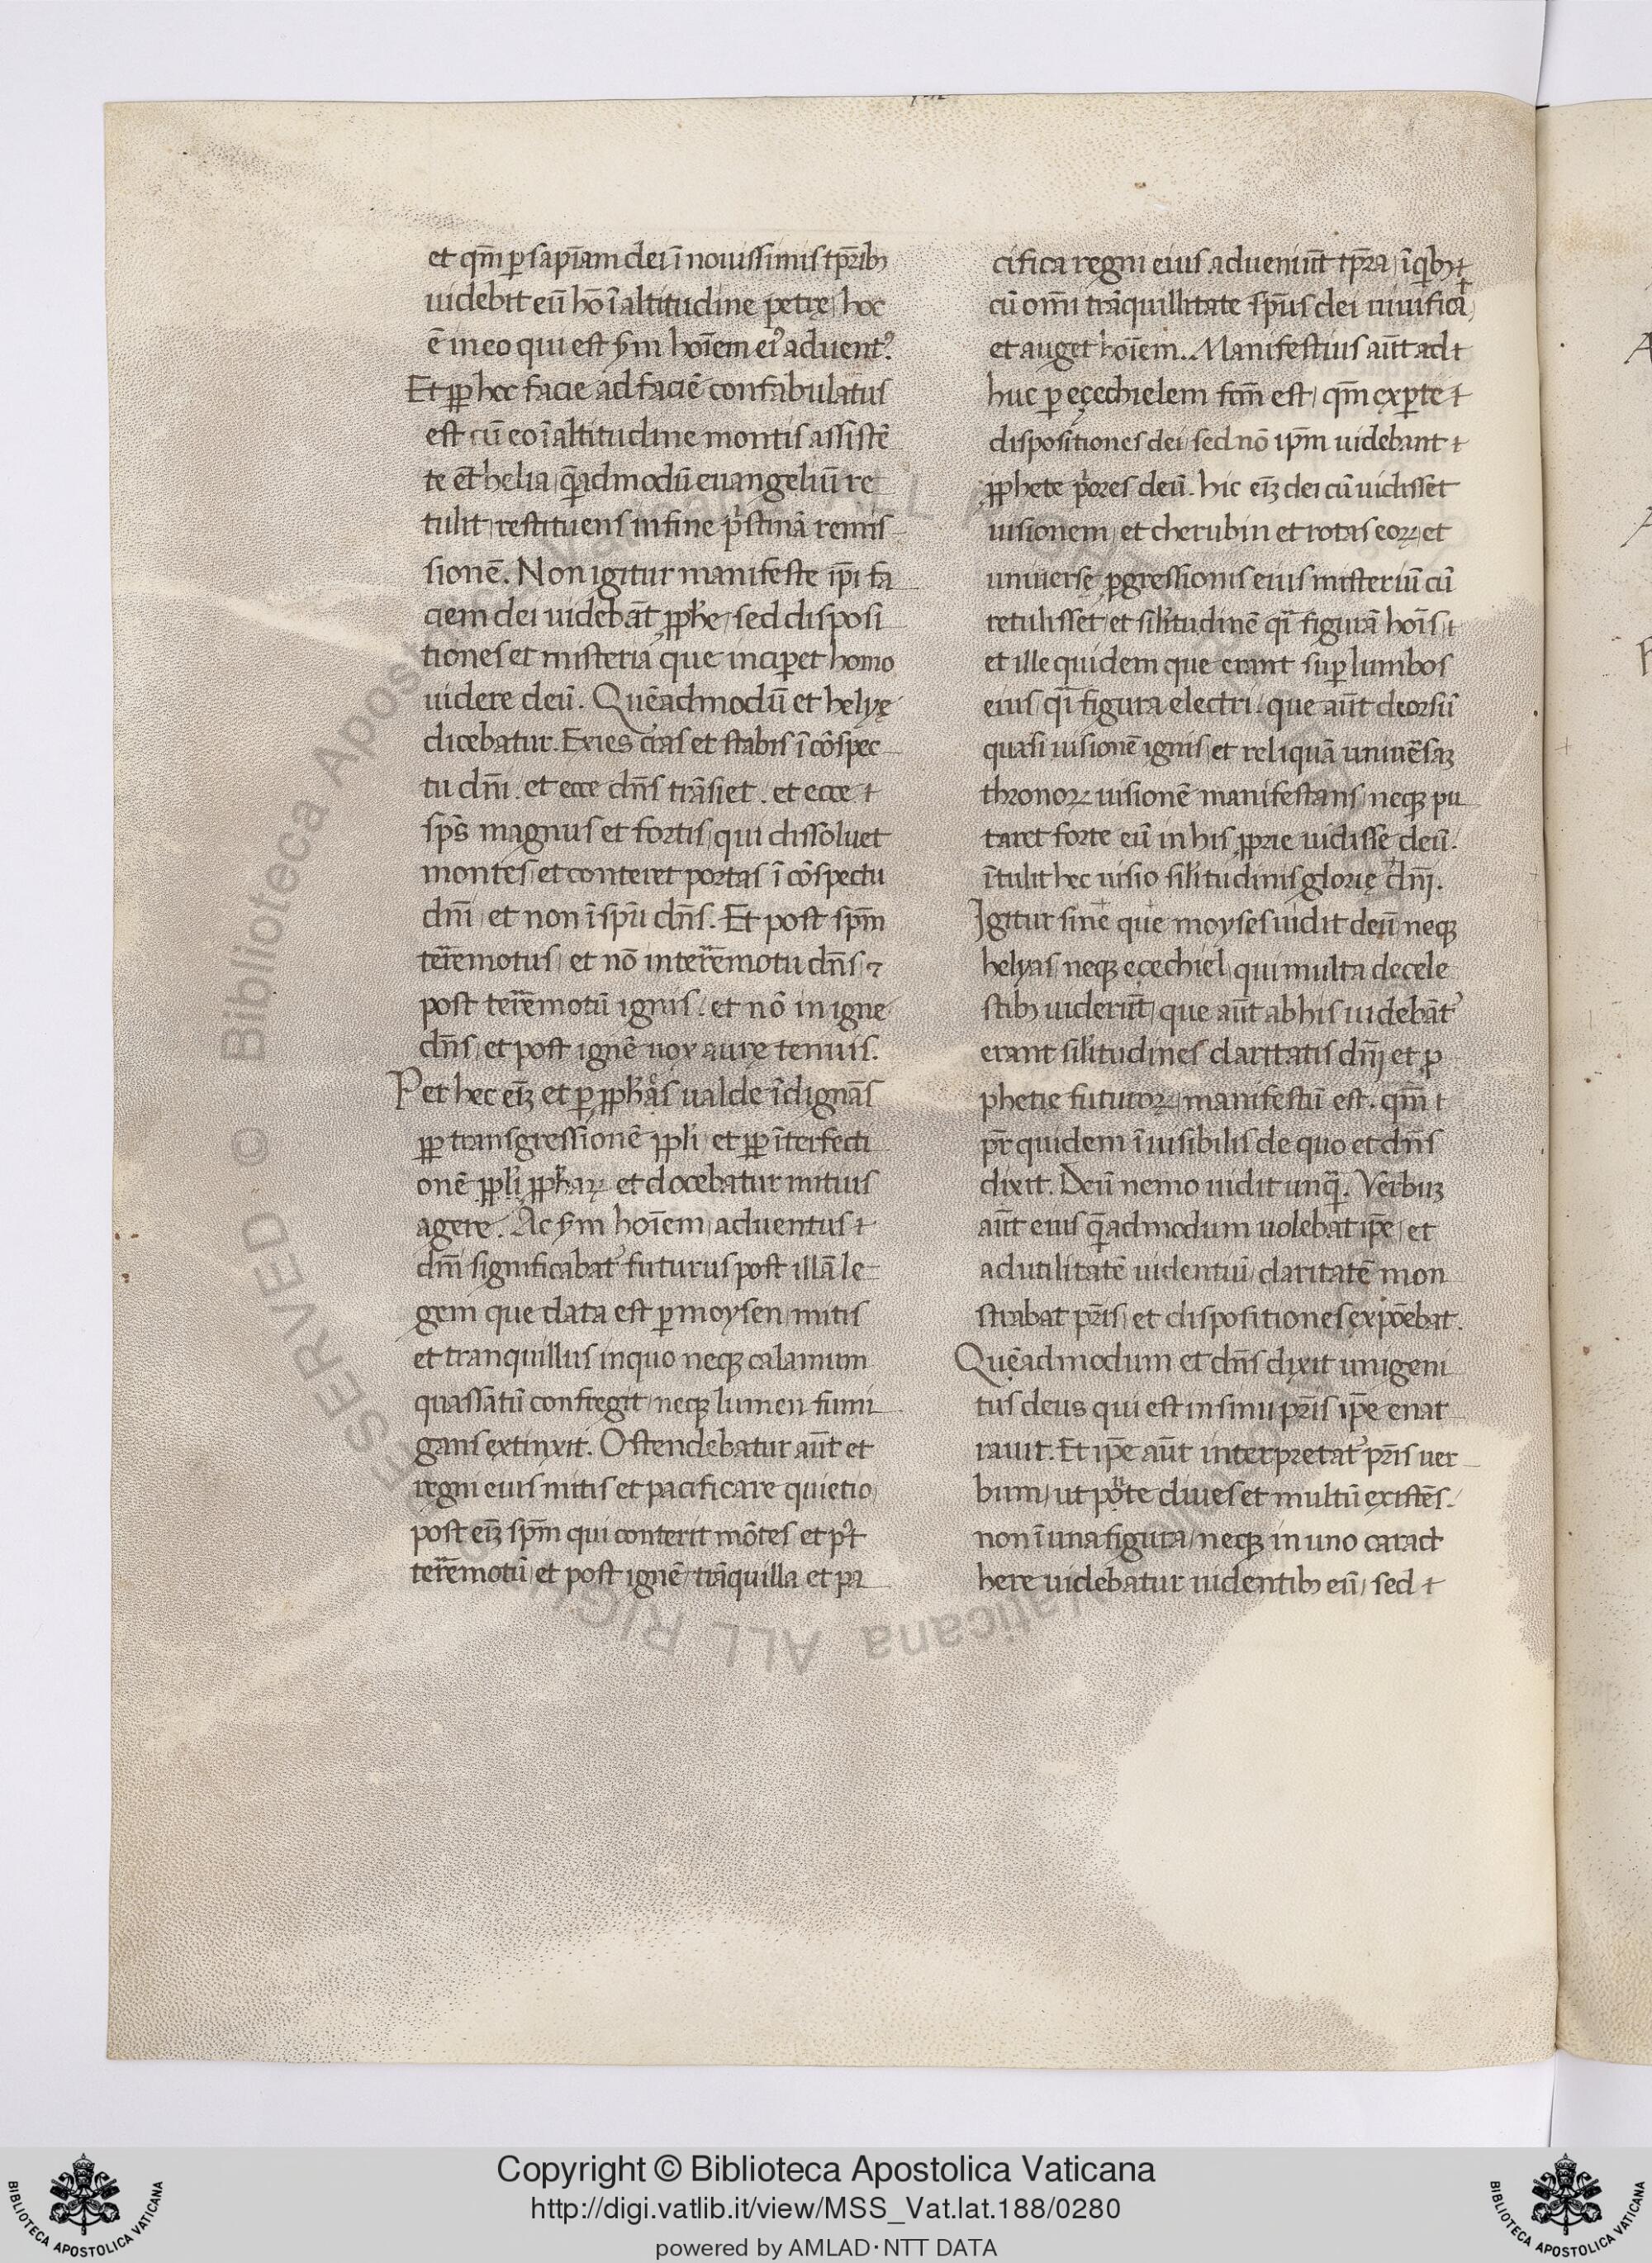 et qm̄ p sapīam dei ī nouissimis tp̄rib;
uidebit eū hō ī altitudine petrę, hoc
ē in eo qui est s̄m hoīem ei⁹ aduent⁹.
Et pp hoc facie ad faciē confabulatus
est cū eo ī altitudine montis assistē
te et̄ helia, q̄admodū euangeliū re
tulit, restituens in fine pͥstinā remis
sionē. Non igitur manifeste ip̄i fa
ciem dei uidebāt pphe, sed disposi
tiones et misteria que inciperet homo
uidere deū. Quēadmodū et helyę
dicebatur. Exies cras et stabis ī cōspec
tu dn̄i. et ecce dn̄s trāsiet. et ecce
sp̄s magnus et fortis, qui dissoluet
montes, et conteret portas ī cōspectu
dn̄i, et non ī sp̄u dn̄s. Et post sp̄m
terremotus, et nō in terremotu dn̄s ⁊
post terremotū ignis. et nō in igne
dn̄s, et post ignē uox aurę tenuis.
Pet hec eīz et p pphās ualde īdignās
pp transgressionē ppli, et pp īterfecti
onē ppli pphaꝝ et docebatur mitius
agere. Ac s̄m hoīem, aduentus
dn̄i significabat᾿ futurus post illā le
gem que data est p moysen, mitis
et tranquillus in quo neq; calamum
quassatū confregit, neq; lumen fumi
gans extinxit. Ostendebatur aūt et
regni eius mitis et pacificare quietio,
post eīz sp̄m qui conterit mōtes et pͦt
terremotū, et post ignē, trāquilla et pa
cifica regni eius adueniūt tp̄ra, ī qͥb;
cū om̄i trāquillitate sp̄us dei uiuificat,
et auget hoīem. Manifestius aūt ad
huc p eçechielem fcm̄ est, qm̄ ex pte
dispositiones dei, sed nō ip̄m uidebant
pphete pͥores deū. hic eīz dei cū uidisset
uisionem, et cherubin et rotas eoꝝ, et
uniuerse pgressionis eius misteriū cū
retulisset, et silitudinē qͣi figurā hoīs,
et ille quidem que erant sup lumbos
eius, qͣi figura electri. que aūt deorsū
quasi uisionē ignis, et reliquā uniuēsaz
thronoꝝ uisionē manifestans, neq; pu
taret forte eū in his pprie uidisse deū.
ītulit hec uisio silitudinis glorię dn̄i.
Igitur sine que moyses uidit deū, neq;
helyas, neq; eçechiel, qui multa de cele
stib; uiderūt, que aūt ab his uidebāt᾿
erant silitudines claritatis dn̄i et p
phetie futuroꝝ, manifestū est. qm̄
pr̄ quidem ī uisibilis de quo et dn̄s
dixit. Deū nemo uidit unqͣ. Verbuz
aūt eius q̄admodum uolebat ip̄e, et
ad utilitatē uidentiū, claritatē mon
strabat pr̄is, et dispositiones expōebat.
Quēadmodum et dn̄s dixit unigeni
tus deus qui est in sinu pr̄is ip̄e enar
rauit. Et ip̄e aūt interpretat᾿ pr̄is uer
bum, ut pote diues et multū existēs.
non ī una figura, neq; in uno caract
here uidebatur uidentib; eū, sed
© Biblioteca Apostolica Vaticana ALL RIGHTS RESERVED
Copyright © Biblioteca Apostolica Vaticana
http://digi.vatlib.it/view/MSS_Vat.lat.188/0280
powered by AMLAD·NTT DATA
BIBLIOTECA APOSTOLICA VATICANA
BIBLIOTECA APOSTOLICA VATICANA